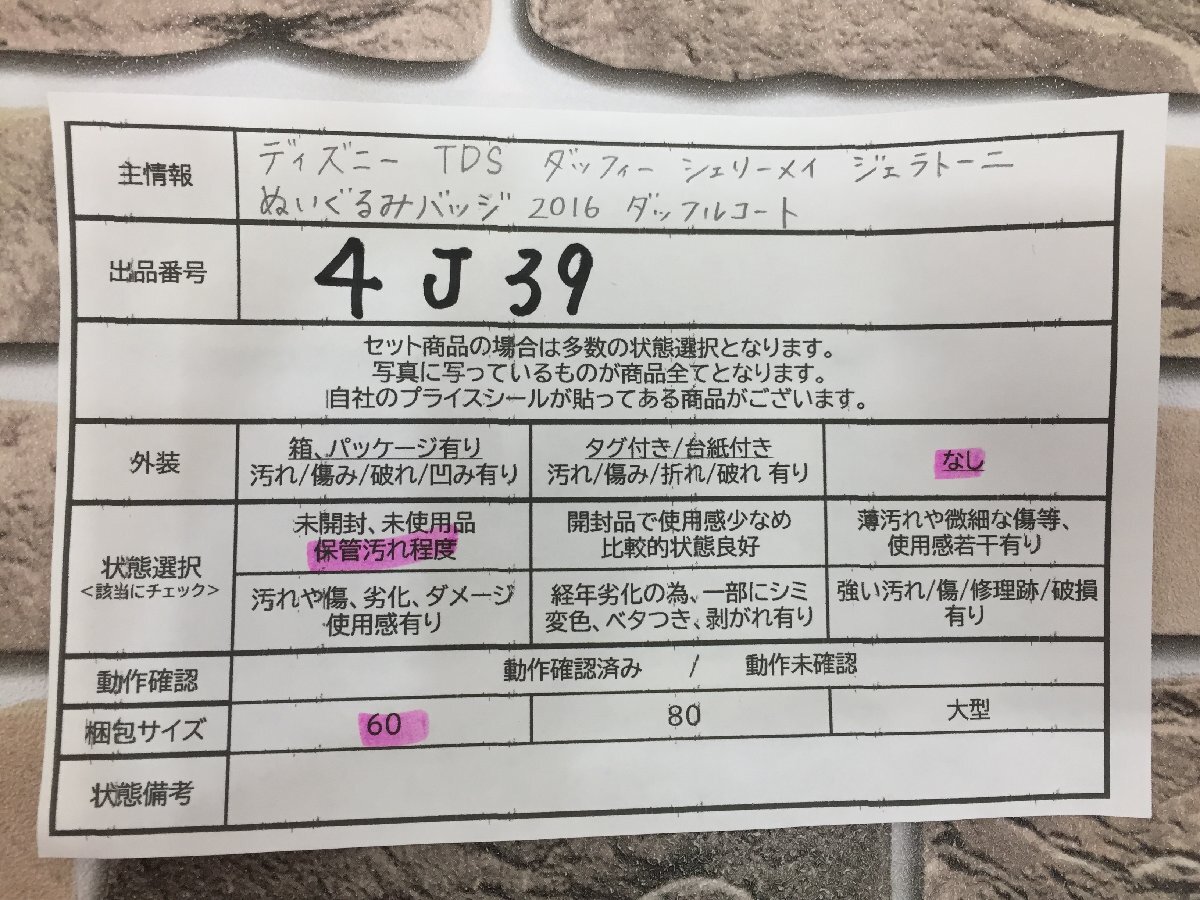 主情報
ディズニー TDS ダッフィー シェリーメイ ジェラトーニ
ぬいぐるみバッジ 2016 ダッフルコート
出品番号
4J39
セット商品の場合は多数の状態選択となります。
写真に写っているものが商品全てとなります。
自社のプライスシールが貼ってある商品がございます。
外装
箱、パッケージ有り
汚れ/傷み/破れ/凹み有り
タグ付き/台紙付き
汚れ/傷み/折れ/破れ 有り
なし
状態選択
<該当にチェック>
未開封、未使用品
保管汚れ程度
開封品で使用感少なめ
比較的状態良好
薄汚れや微細な傷等、
使用感若干有り
汚れや傷、劣化、ダメージ
使用感有り
経年劣化の為、一部にシミ
変色、ベタつき、剥がれ有り
強い汚れ/傷/修理跡/破損
有り
動作確認
動作確認済み / 動作未確認
梱包サイズ
60
80
大型
状態備考